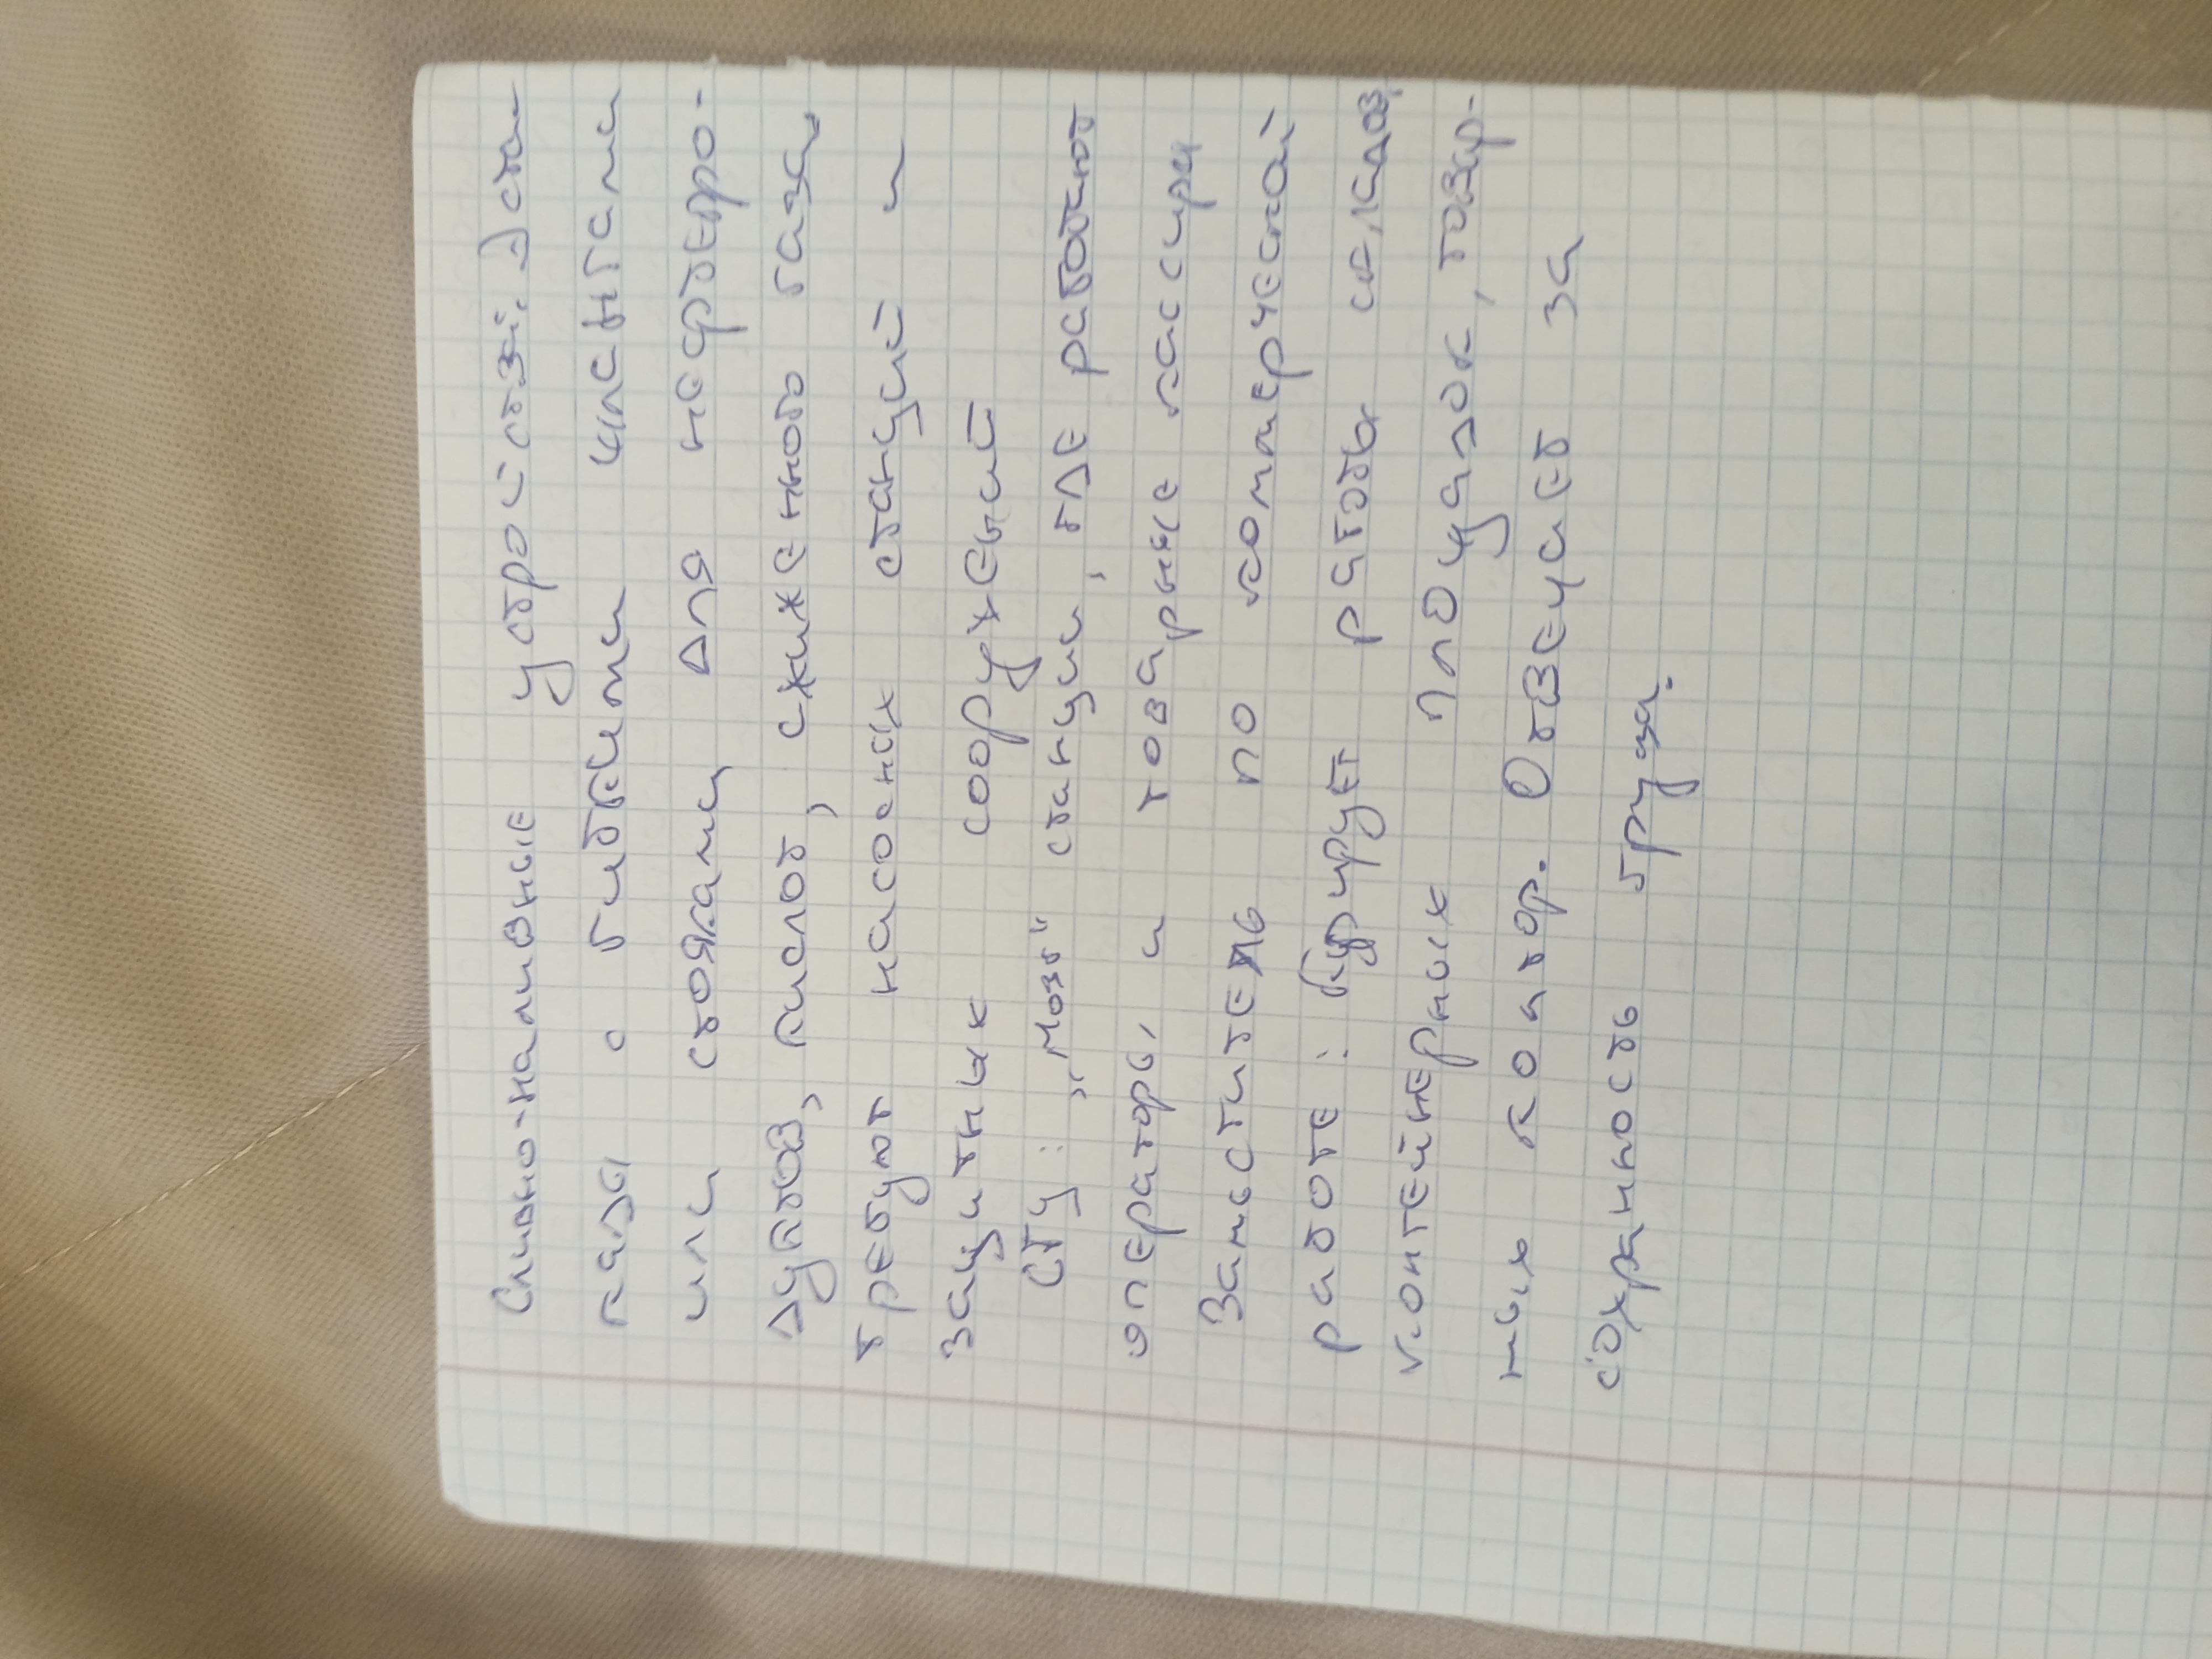 Сливно-наливные устройства. Эста-
кады с гибкими шлангами
или стояками для нефтепро-
дуктов, кислот, сжиженного газа
требуют насосных станций и
защитных сооружений
СТЦ: "Мозг" станции, где работают
операторы, и товарные кассиры
Заместитель по коммерческой
работе: Курирует работы складов,
контейнерных площадок, товар-
ных контор. Отвечает за
сохранность груза.